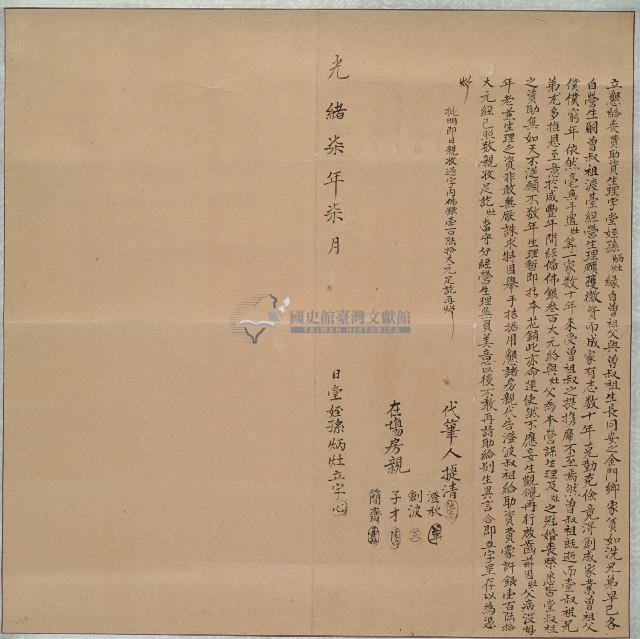 立懇給喪費助資生理字堂姪孫炳灶緣自曾祖父與曾叔祖生長同安之金門鄉家貧如洗兄弟早已各
自營生嗣曾叔祖渡臺經營生理頗獲微資而成家有志數十年克勤克儉竟得創成家業曾祖父
僕僕窮年依然毫無手遺灶等一家數十年來受曾祖叔之提携靡不至焉然曾叔祖既逝而堂叔祖兄
弟尤多推恩至意於咸豐年間經備佛銀叁百大元給與灶父為本營謀生理及灶之冠婚喪祭悉皆堂叔祖
之資助無如天不從願不數年生理暫即折本花銷此亦命運使然不應妄生觀覬再行啟齒茲因灶父病沒母
年老兼生理之資非敢無厭誅求特因舉手拮据用懇諸房親代告澄波叔祖給助資費蒙許銀壹百陸拾
大元經已照數親收足訖灶當守分經營生理無負美意以後不敢再請助給別生異言合即立字呈存以為憑
炤
批明即日親收過字內佛銀壹百陸拾大元足訖再炤
代筆人 提清
在塲房親 澄秋
劍波
子才
簡齋
光緒柒年柒月 日堂姪孫炳灶立字
國史館臺灣文獻館
TAIWAN HISTORICA